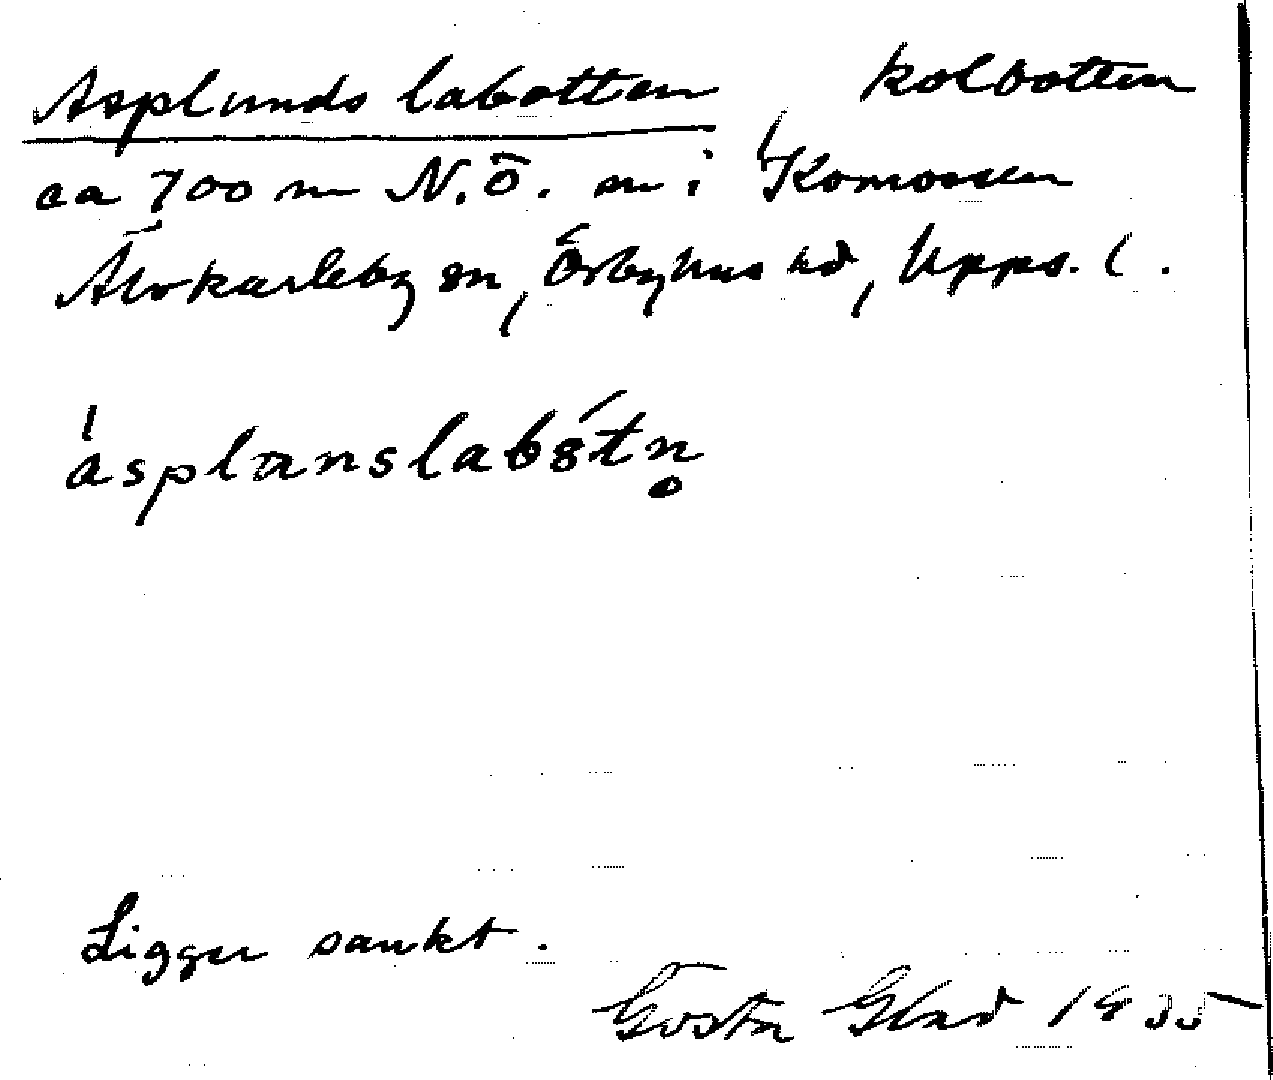 Asplunds labotten kolbotten
ca 700 m N.Ö. m i Komossen
Älvkarleby sn, Örbyhus hd, Upps. l.
ásplanslabótn̥
Ligger sankt.
Gösta Glad 1935